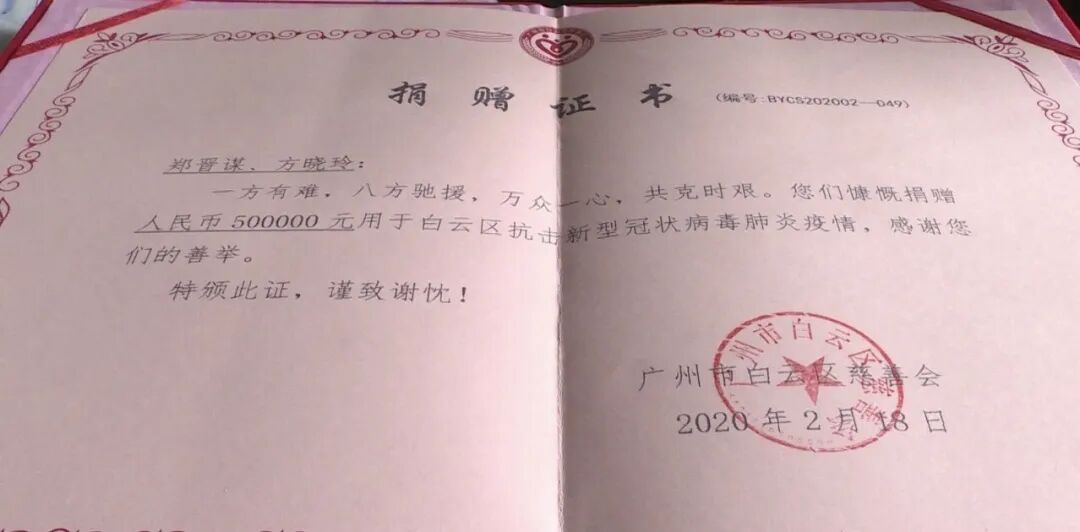 捐赠证书 (编号:BYCS202002—049)
郑晋谋、方晓玲：
一方有难，八方驰援，万众一心，共克时艰。您们慷慨捐赠
人民币500000元用于白云区抗击新型冠状病毒肺炎疫情，感谢您
们的善举。
特颁此证，谨致谢忱！
广州市白云区慈善会
2020年2月18日
广州市白云区慈善会